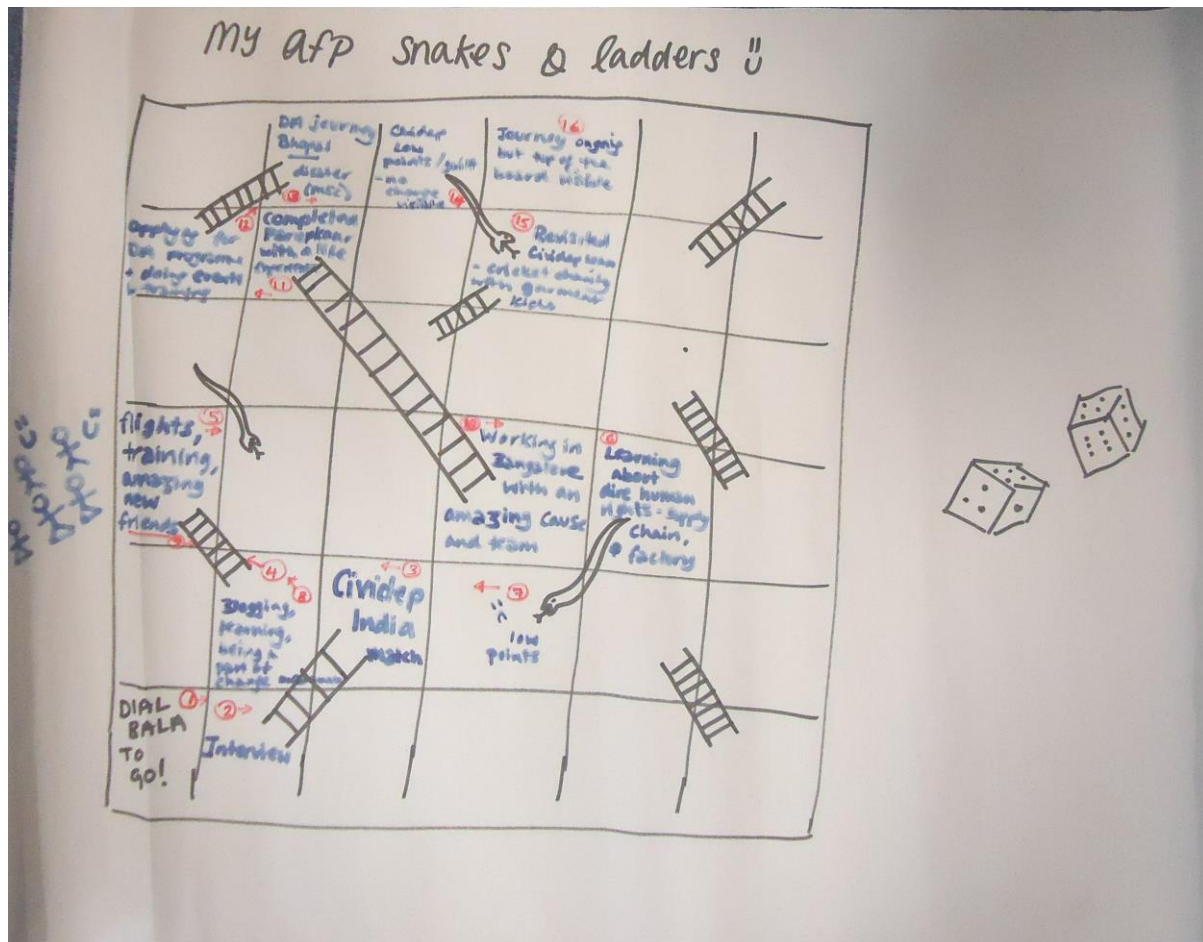 my afp snakes & ladders
DM journey
Bhopal
disaster
(msc)
13
Cividep
low
points/guilt
- no
change
visible
14
16
Journey ongoing
but top of the
board visible
12
applying for
DM programme
+ doing events
+ training
completion
with a
experience
11
15
Revisited
Cividep loan
- cricket charity
with garment
kids
5
flights,
training,
amazing
new
friends
10
Working in
Bangalore
with an
amazing cause
and team
6
Learning
about
dire human
rights - supply
chain,
factory
4
8
Blogging,
learning,
being a
part of
change
3
Cividep
India
match
7
low
points
DIAL
BALA
TO
GO!
1
2
Interview